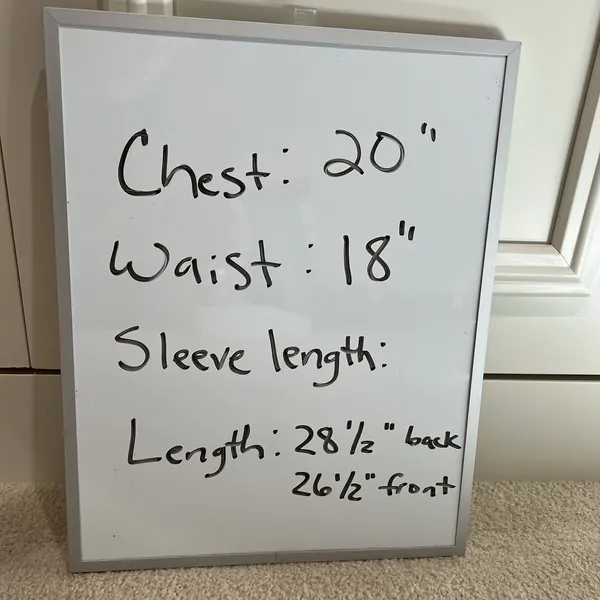 Chest: 20"
Waist: 18"
Sleeve length:
Length: 28 1/2" back
26 1/2" front